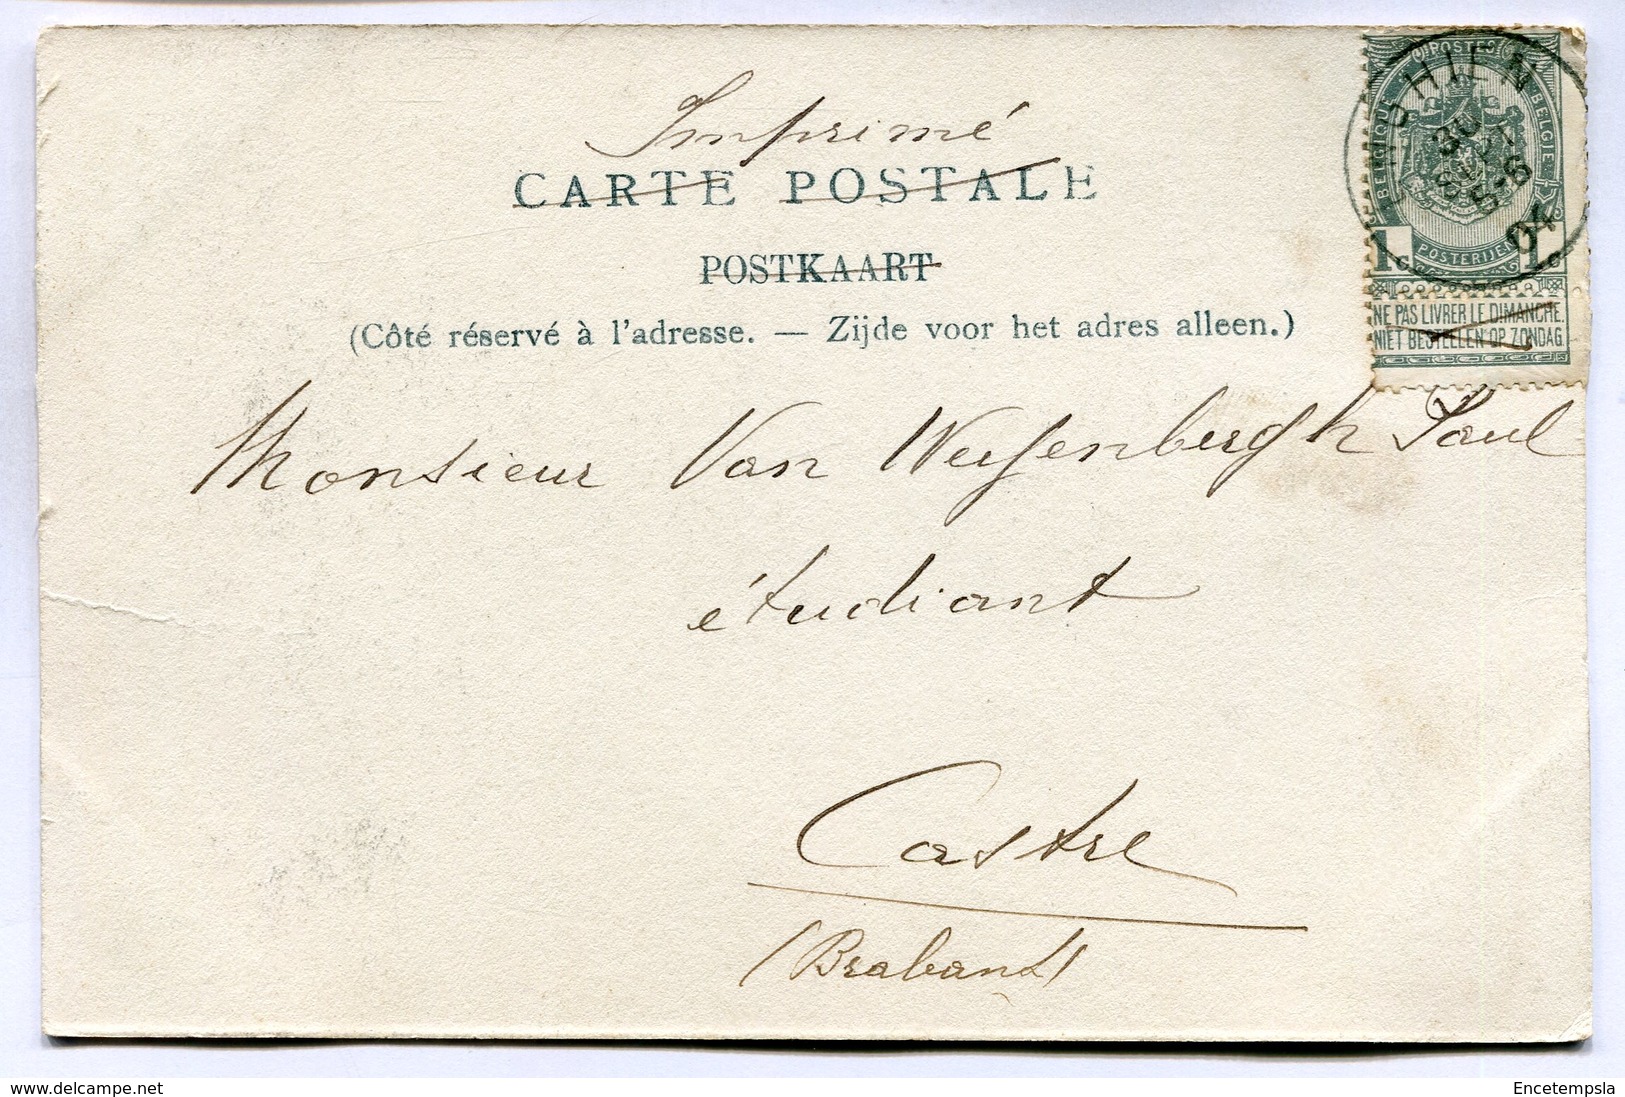 Imprimé
CARTE POSTALE
POSTKAART
(Côté réservé à l'adresse. — Zijde voor het adres alleen.)
POSTES
BELGIQUE
BELGIE
POSTERIJEN
1c 1c
NE PAS LIVRER LE DIMANCHE.
NIET BESTELLEN OP ZONDAG
ENGHIEN
30
5-6
04
Monsieur Van
étudiant
Castre
(Brabant)
delcampe.net
Encetempsla